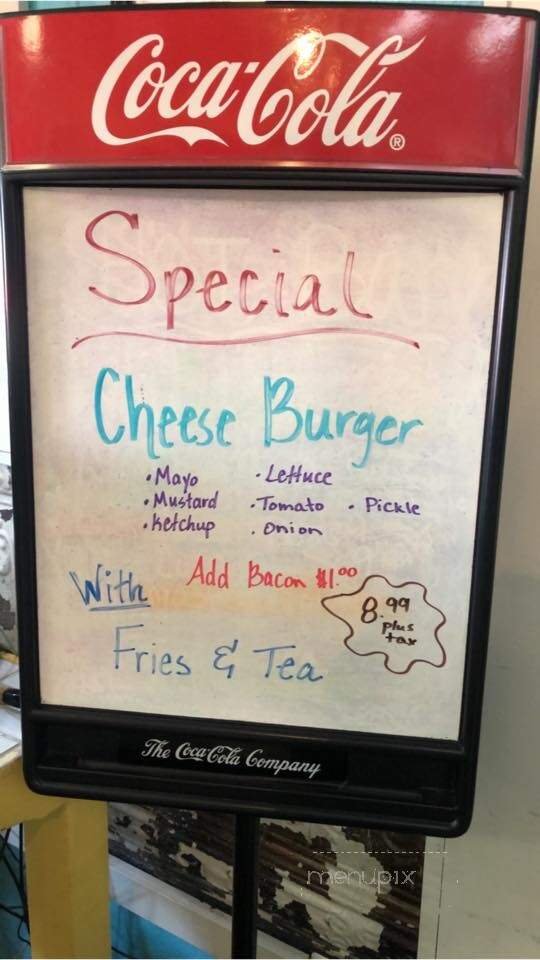 Coca-Cola®
Special
Cheese Burger
• Mayo • Lettuce
• Mustard • Tomato • Pickle
• Ketchup • Onion
Add Bacon $1.00
With
8.99
plus
tax
Fries & Tea
The Coca-Cola Company
menupix